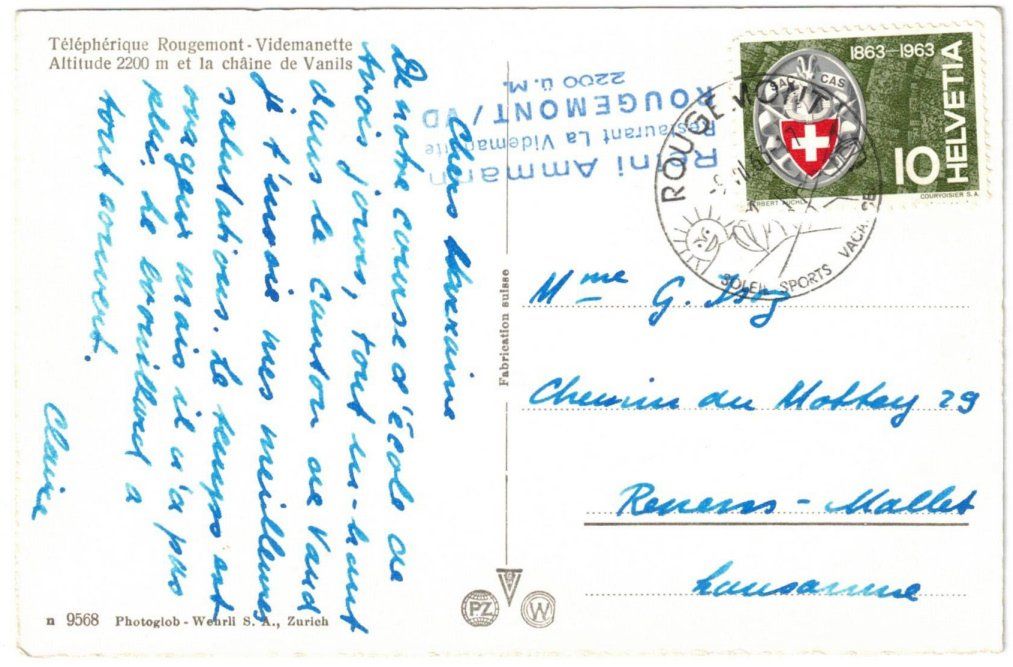 Téléphérique Rougemont - Videmanette
Altitude 2200 m et la chaîne de Vanils
Chère
De notre course d'école de
trois jours, tout en-haut
dans le canton de Vaud
je t'envoie mes meilleures
salutations. Le temps est
orageux mais il n'a pas
plu. Le brouillard a
tout couvert.
Claire
Reni Ammann
Restaurant La Videmanette
ROUGEMONT/VD
2200 ü. M.
1863-1963
SAC CAS
HELVETIA
10
COURVOISIER S.A.
ROUGEMONT
SOLEIL SPORTS VACANCES
Mme G.
Chemin du Mottey 29
Renens - Mallet
Lausanne
Fabrication suisse
PZ
W
n 9568 Photoglob - Wehrli S. A., Zurich